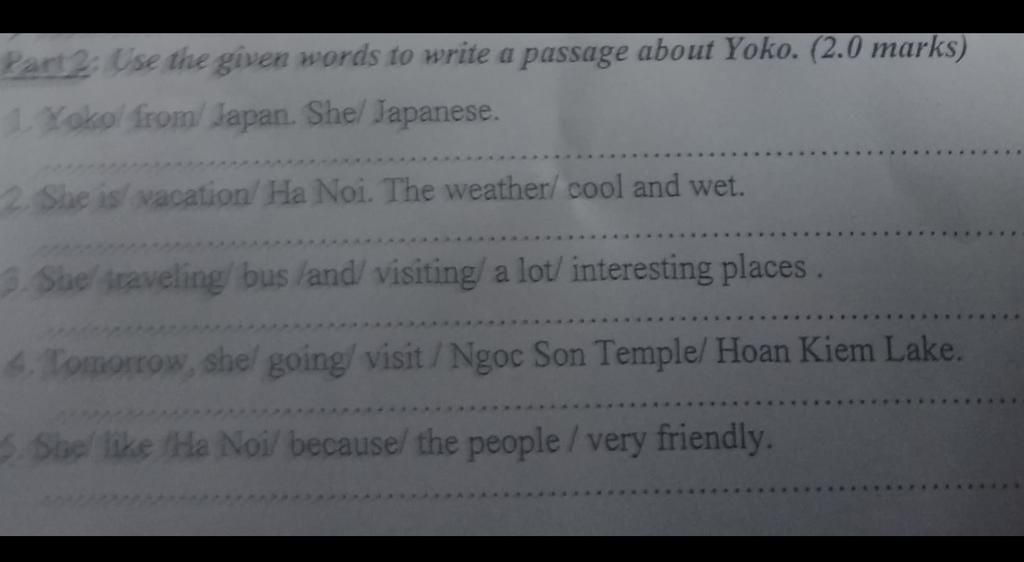 Part 2: Use the given words to write a passage about Yoko. (2.0 marks)
1. Yoko/ from/ Japan. She/ Japanese.
2. She is/ vacation/ Ha Noi. The weather/ cool and wet.
3. She/ traveling/ bus /and/ visiting/ a lot/ interesting places .
4. Tomorrow, she/ going/ visit / Ngoc Son Temple/ Hoan Kiem Lake.
5. She/ like /Ha Noi/ because/ the people / very friendly.